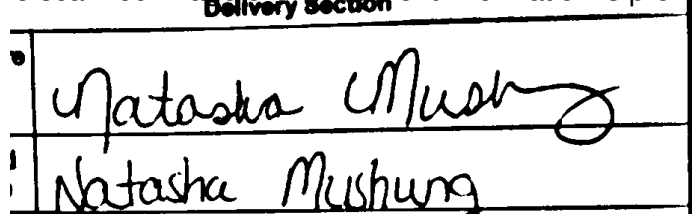 Delivery Section
Natasha Mushung
Natasha Mushung